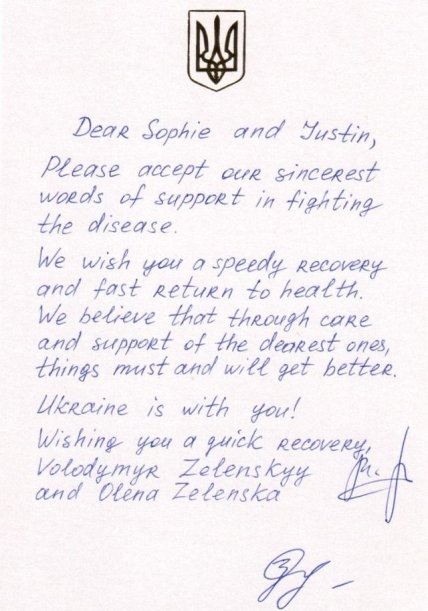 Dear Sophie and Justin,
Please accept our sincerest
words of support in fighting
the disease.
We wish you a speedy recovery
and fast return to health.
We believe that through care
and support of the dearest ones,
things must and will get better.
Ukraine is with you!
Wishing you a quick recovery,
Volodymyr Zelenskyy
and Olena Zelenska